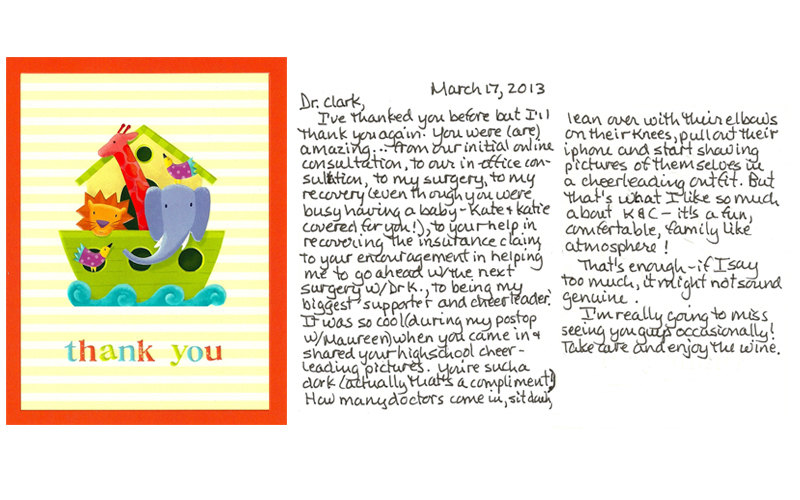 thank you
March 17, 2013
Dr. Clark,
I've thanked you before but I'll
thank you again. You were (are)
amazing... from our initial online
consultation, to our in-office con-
sultation, to my surgery, to my
recovery (even though you were
busy having a baby - Kate & Katie
covered for you!), to your help in
recovering the insurance claim,
to your encouragement in helping
me to go ahead w/the next
surgery w/Dr K., to being my
biggest supporter and cheerleader.
It was so cool (during my postop
w/Maureen) when you came in &
shared your highschool cheer-
leading pictures. You're such a
dork (actually that's a compliment!)
How many doctors come in, sit down,
lean over with their elbows
on their knees, pull out their
iphone and start showing
pictures of themselves in
a cheerleading outfit. But
that's what I like so much
about K&C - it's a fun,
comfortable, family like
atmosphere!
That's enough - if I say
too much, it might not sound
genuine.
I'm really going to miss
seeing you guys occasionally!
Take care and enjoy the wine.